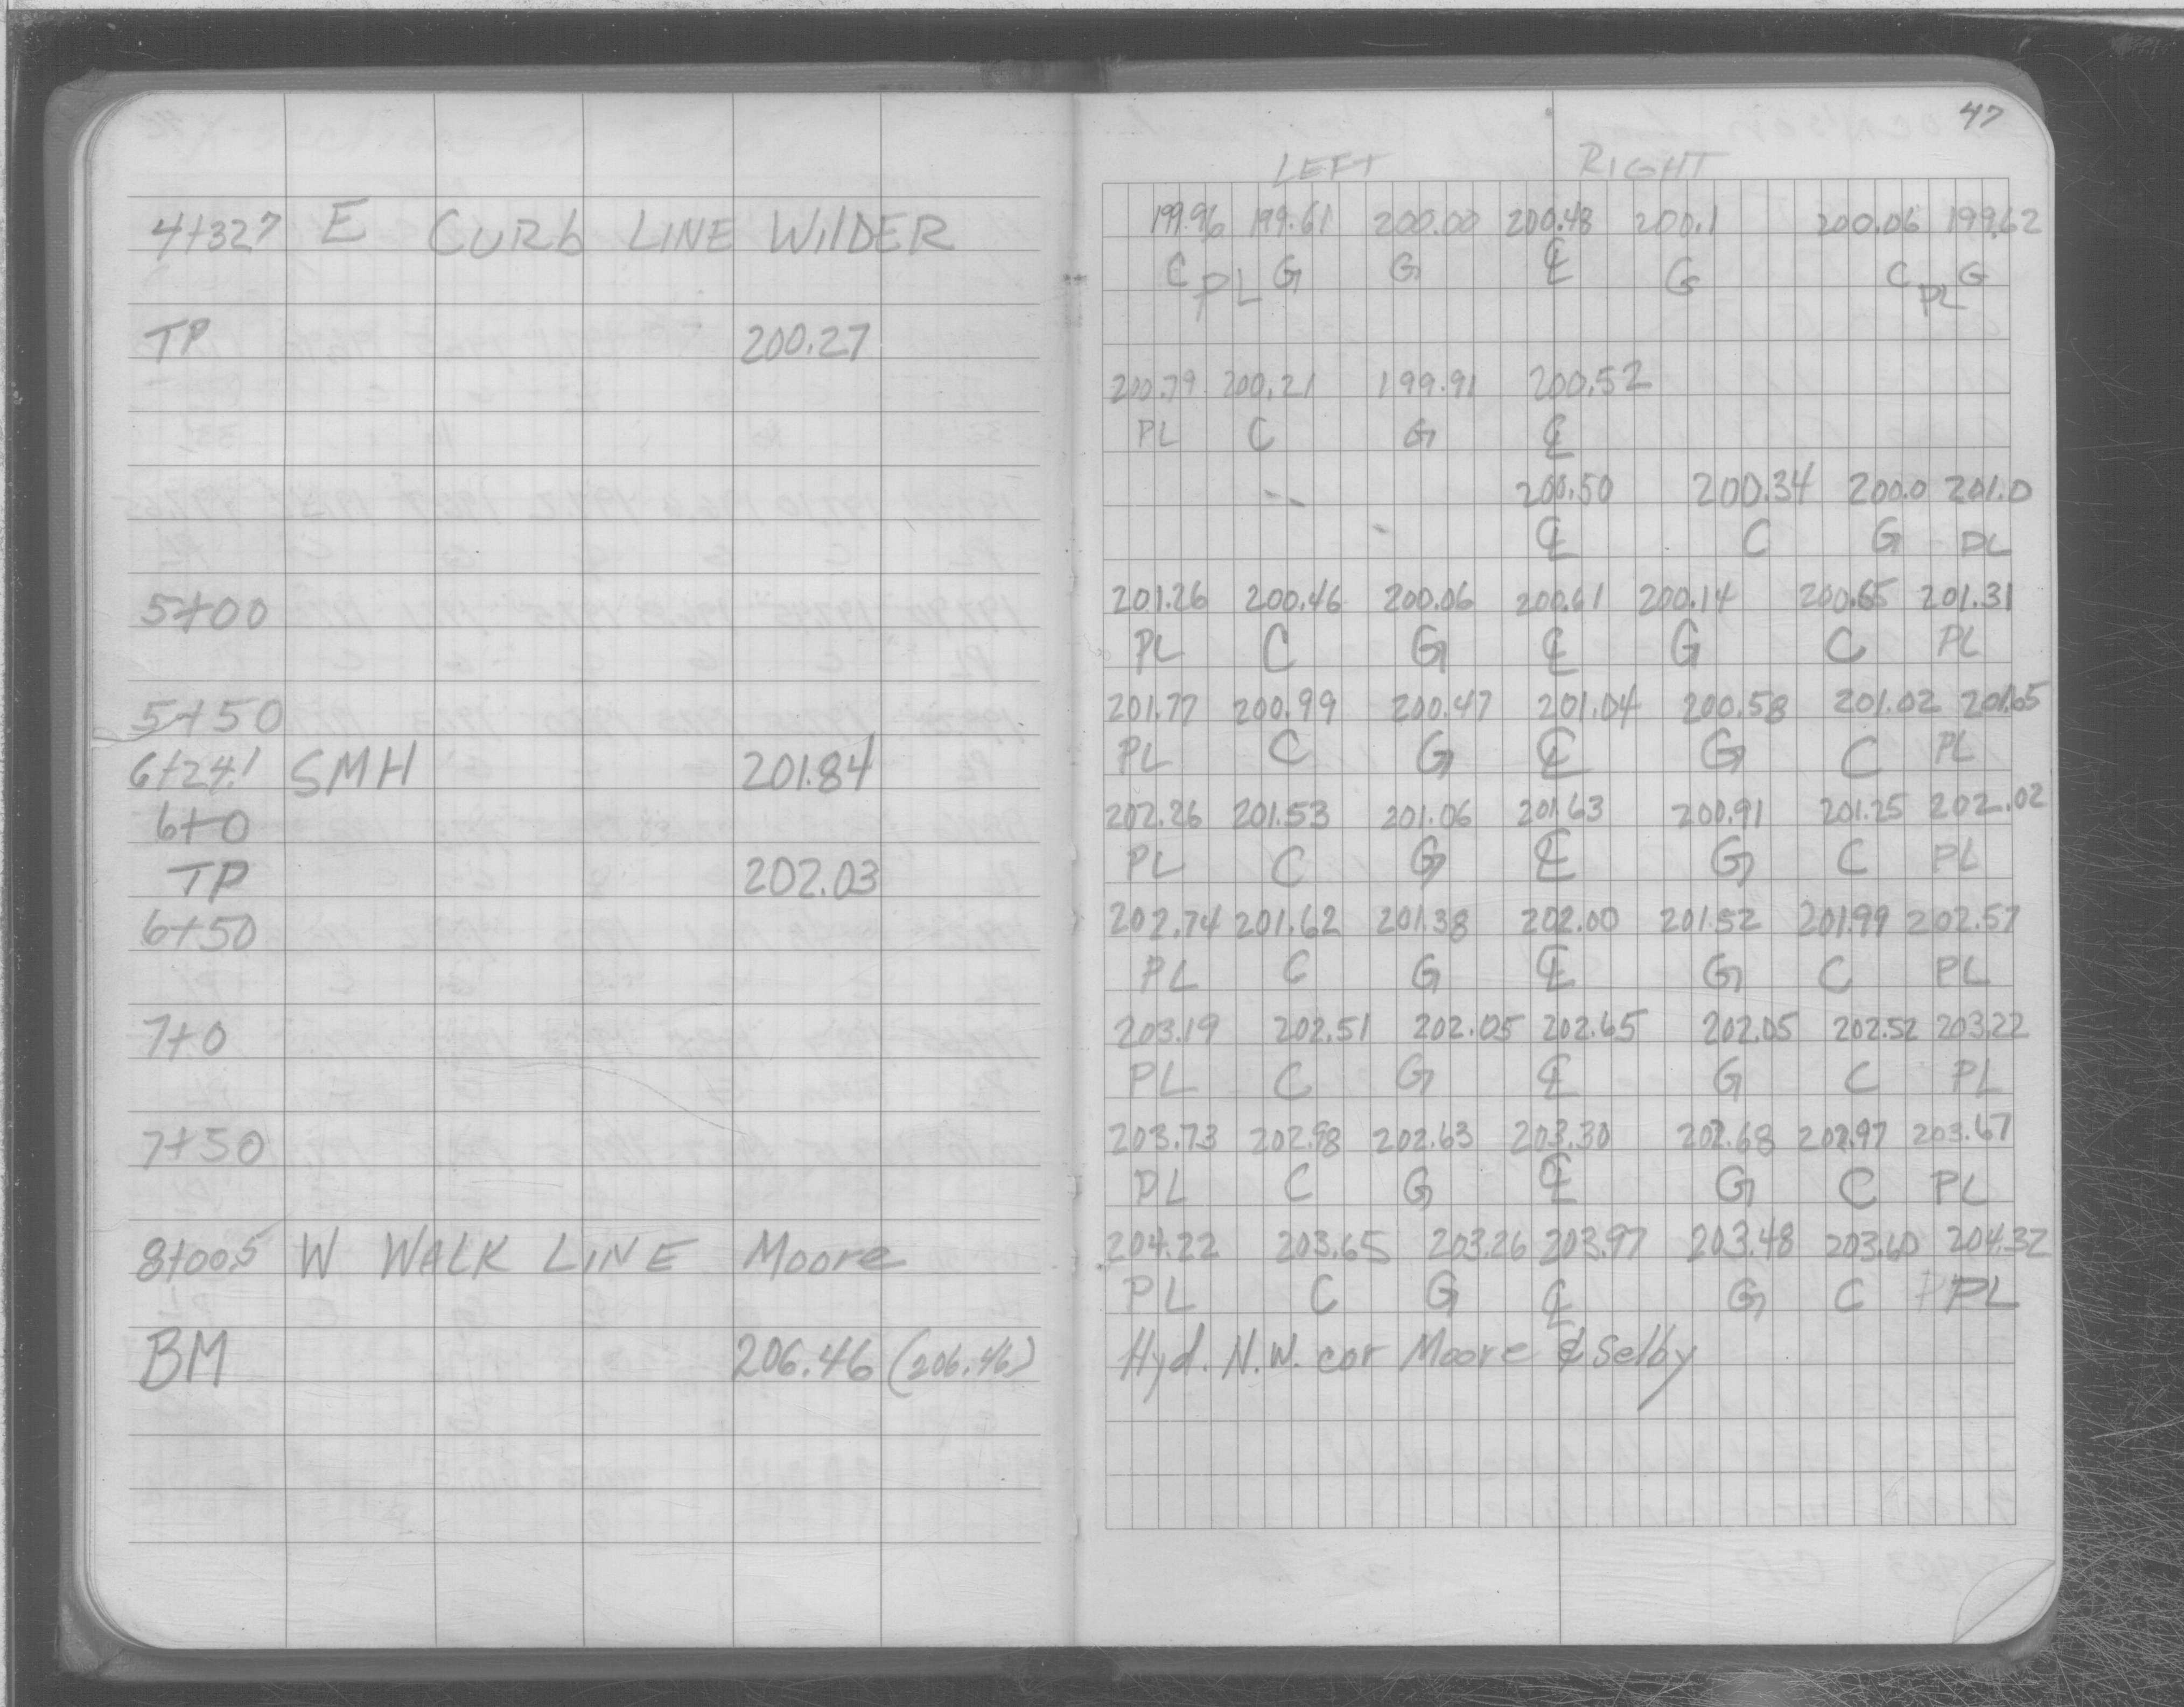 47
LEFT RIGHT
4+327 E CURb LINE WilDER 199.96 199.61 200.00 200.48 200.1 200.06 199.62
C PL G G ℄ G C PL G
TP 200.27
200.79 200.21 199.91 200.52
PL C G ℄
200.50 200.34 200.0 201.0
℄ C G PL
5+00 201.26 200.46 200.06 200.61 200.14 200.65 201.31
PL C G ℄ G C PL
5+50 201.77 200.99 200.47 201.04 200.58 201.02 201.65
6+24.1 SMH 201.84 PL C G ℄ G C PL
6+0 202.26 201.53 201.06 201.63 200.91 201.25 202.02
TP 202.03 PL C G ℄ G C PL
6+50 202.74 201.62 201.38 202.00 201.52 201.99 202.57
PL C G ℄ G C PL
7+0 203.19 202.51 202.05 202.65 202.05 202.52 203.22
PL C G ℄ G C PL
7+50 203.73 202.98 202.63 203.30 202.68 202.97 203.67
PL C G ℄ G C PL
8+00.5 W WALK LINE Moore 204.22 203.65 203.26 203.97 203.48 203.60 204.32
PL C G ℄ G C PL
BM 206.46 (206.46) Hyd. N.W. cor Moore & Selby